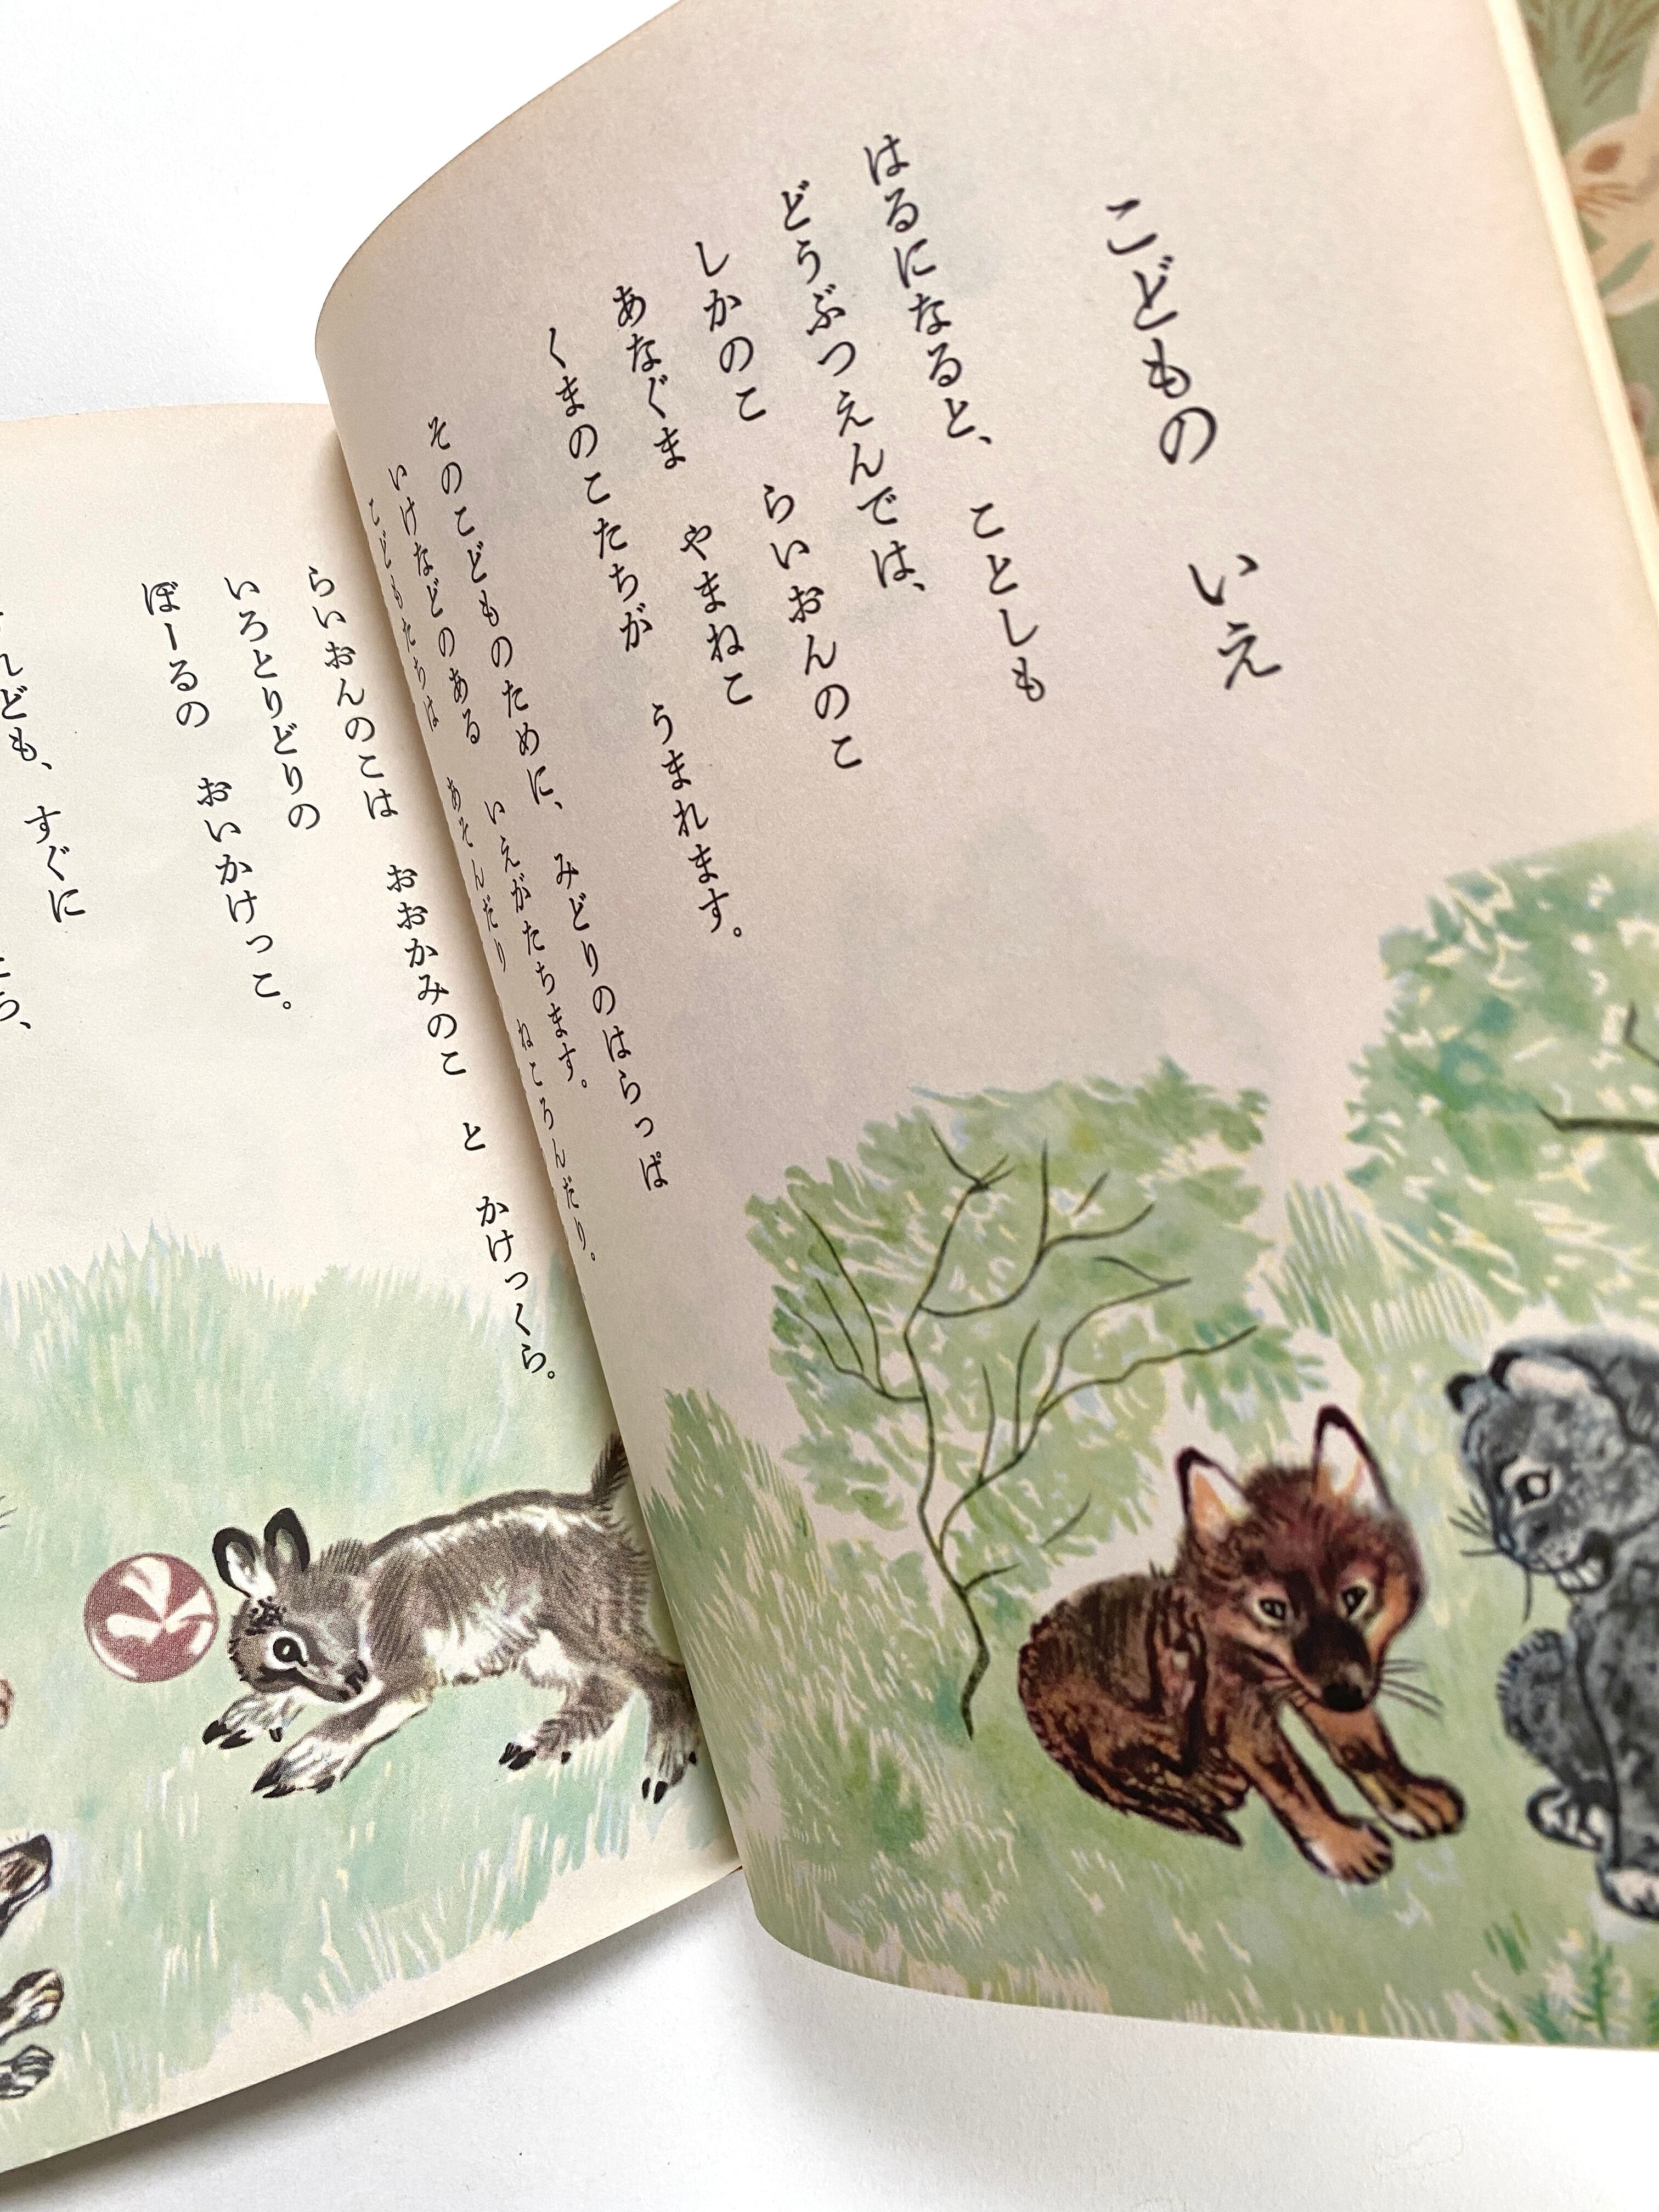 こどもの　いえ
はるになると、　ことしも
どうぶつえんでは、
しかのこ　らいおんのこ
あなぐま　やまねこ
くまのこたちが　うまれます。
そのこどものために、　みどりのはらっぱ
いけなどのある　いえがたちます。
こどもたちは　あそんだり　ねころんだり。
らいおんのこは　おおかみのこ　と　かけっくら。
いろとりどりの
ぼーるの　おいかけっこ。
れども、　すぐに